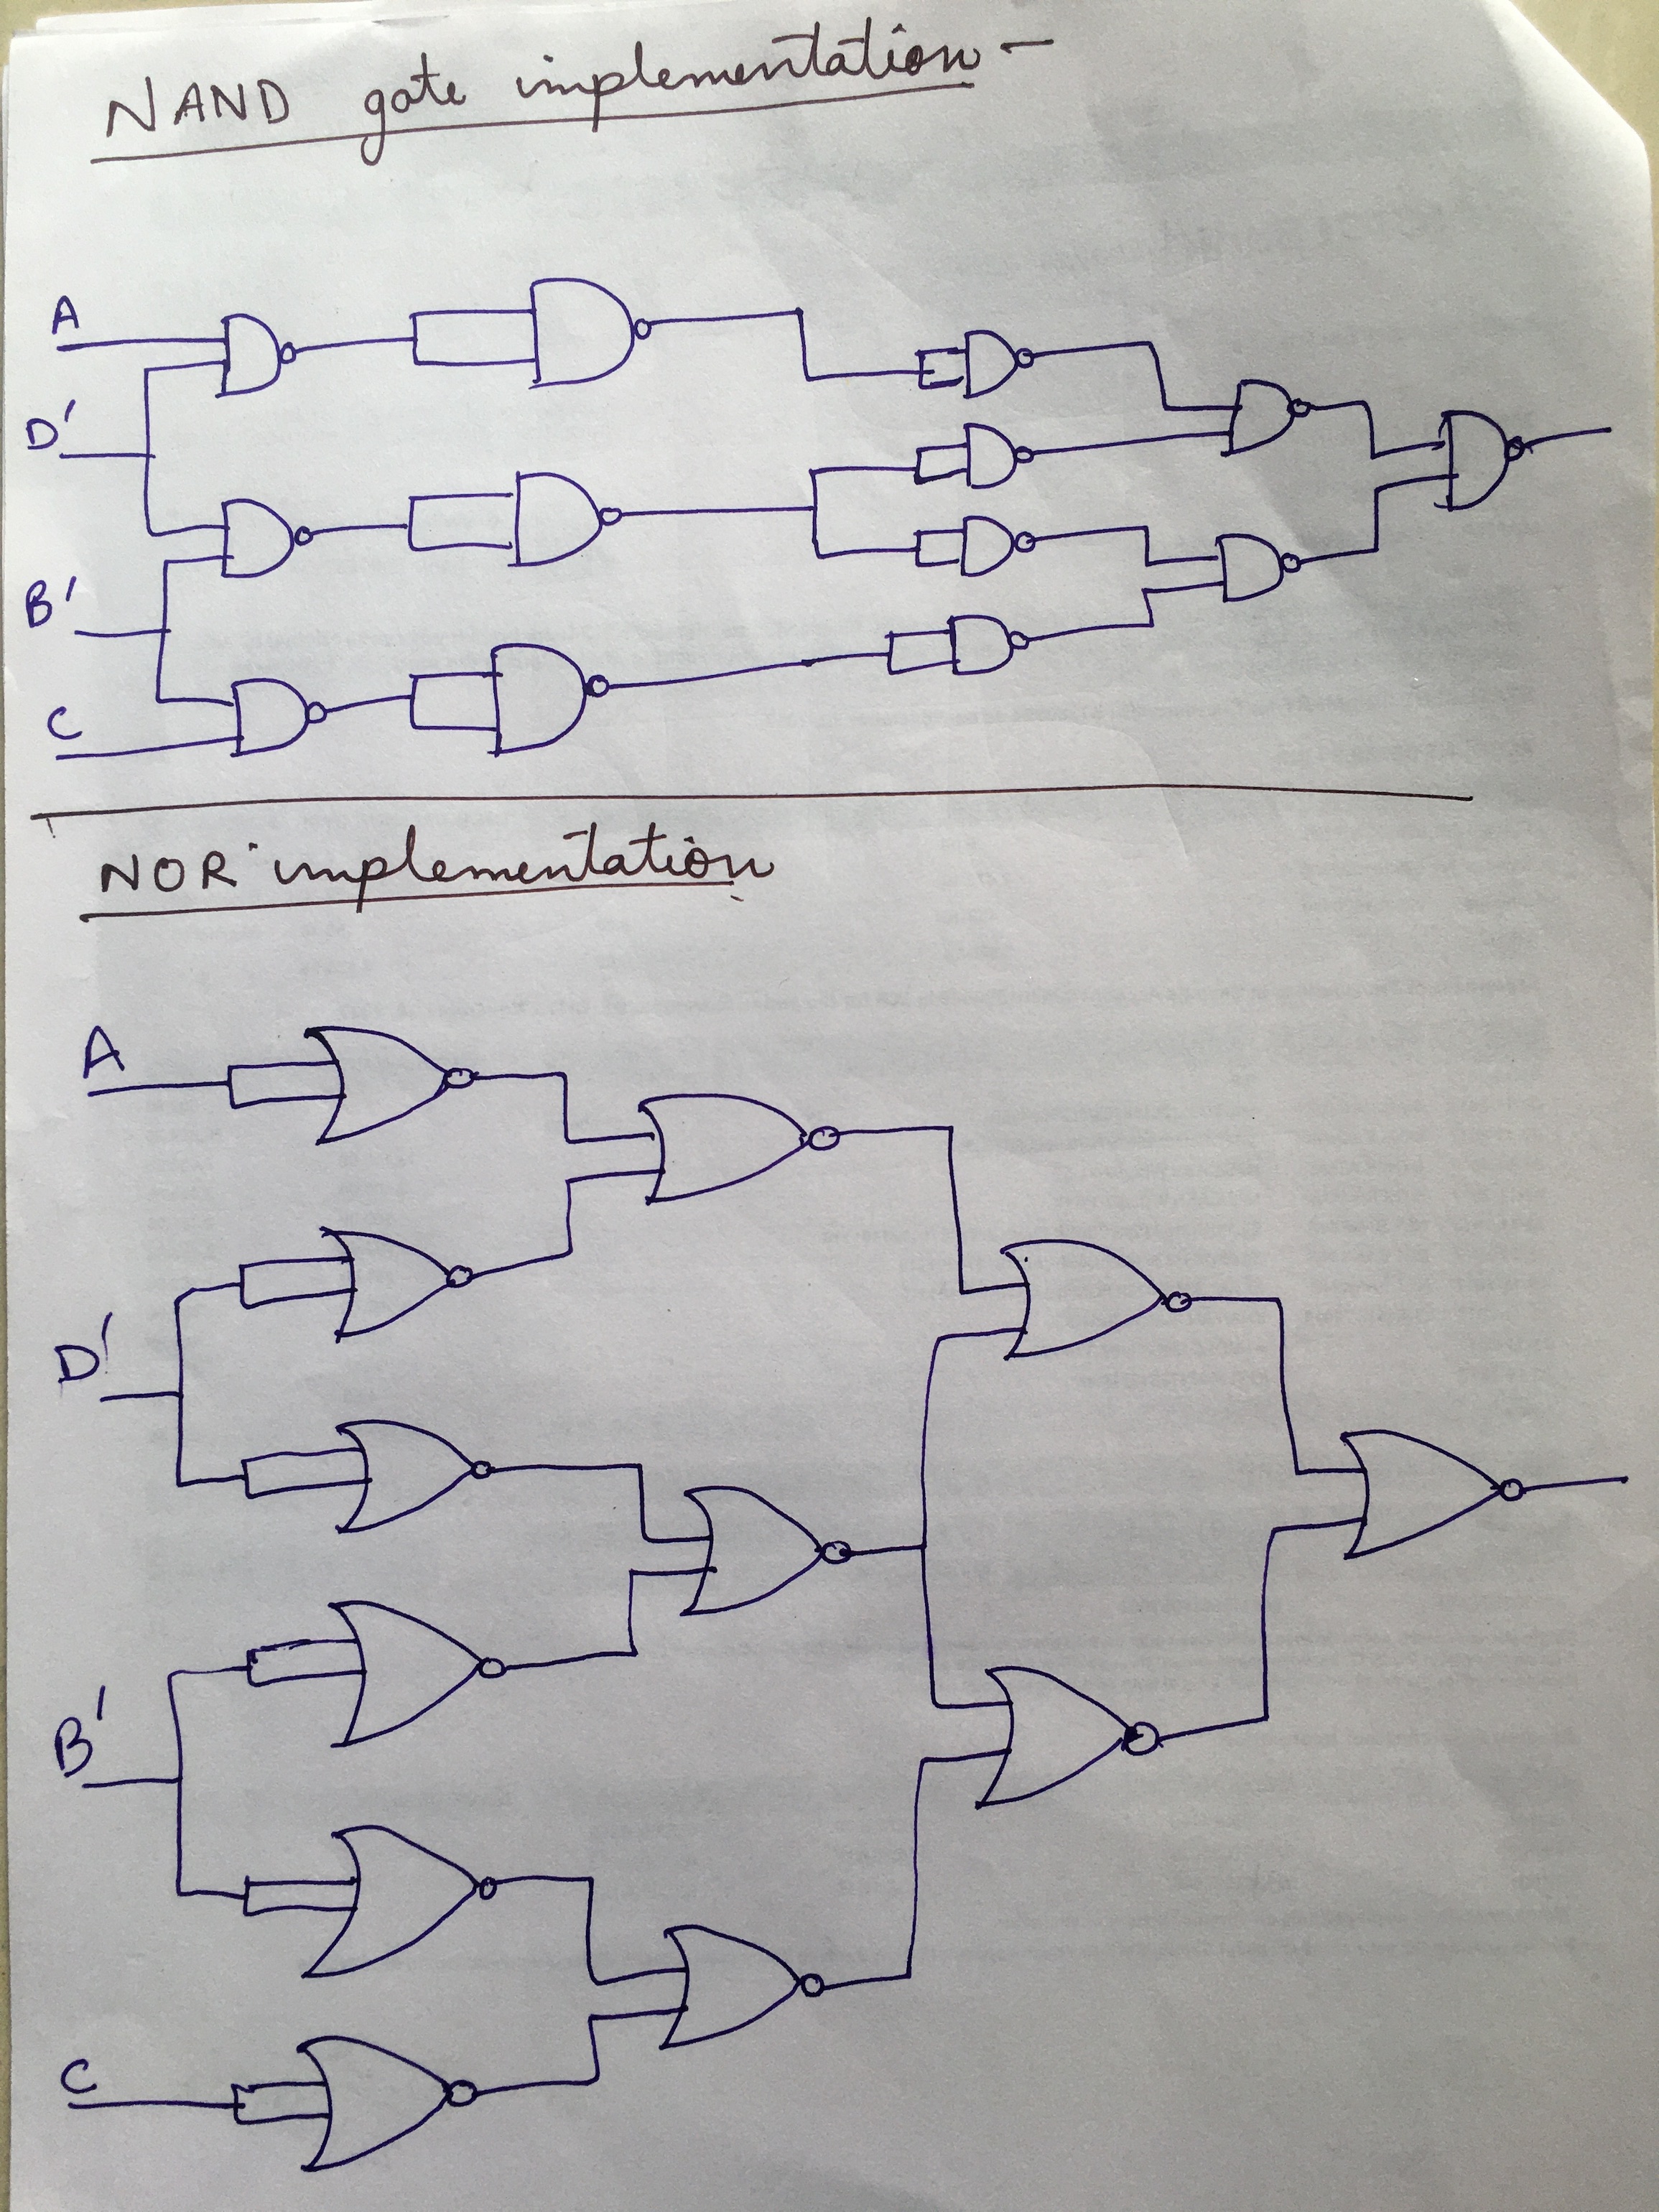 NAND gate implementation -
A
D'
B'
C
NOR implementation
A
D'
B'
C